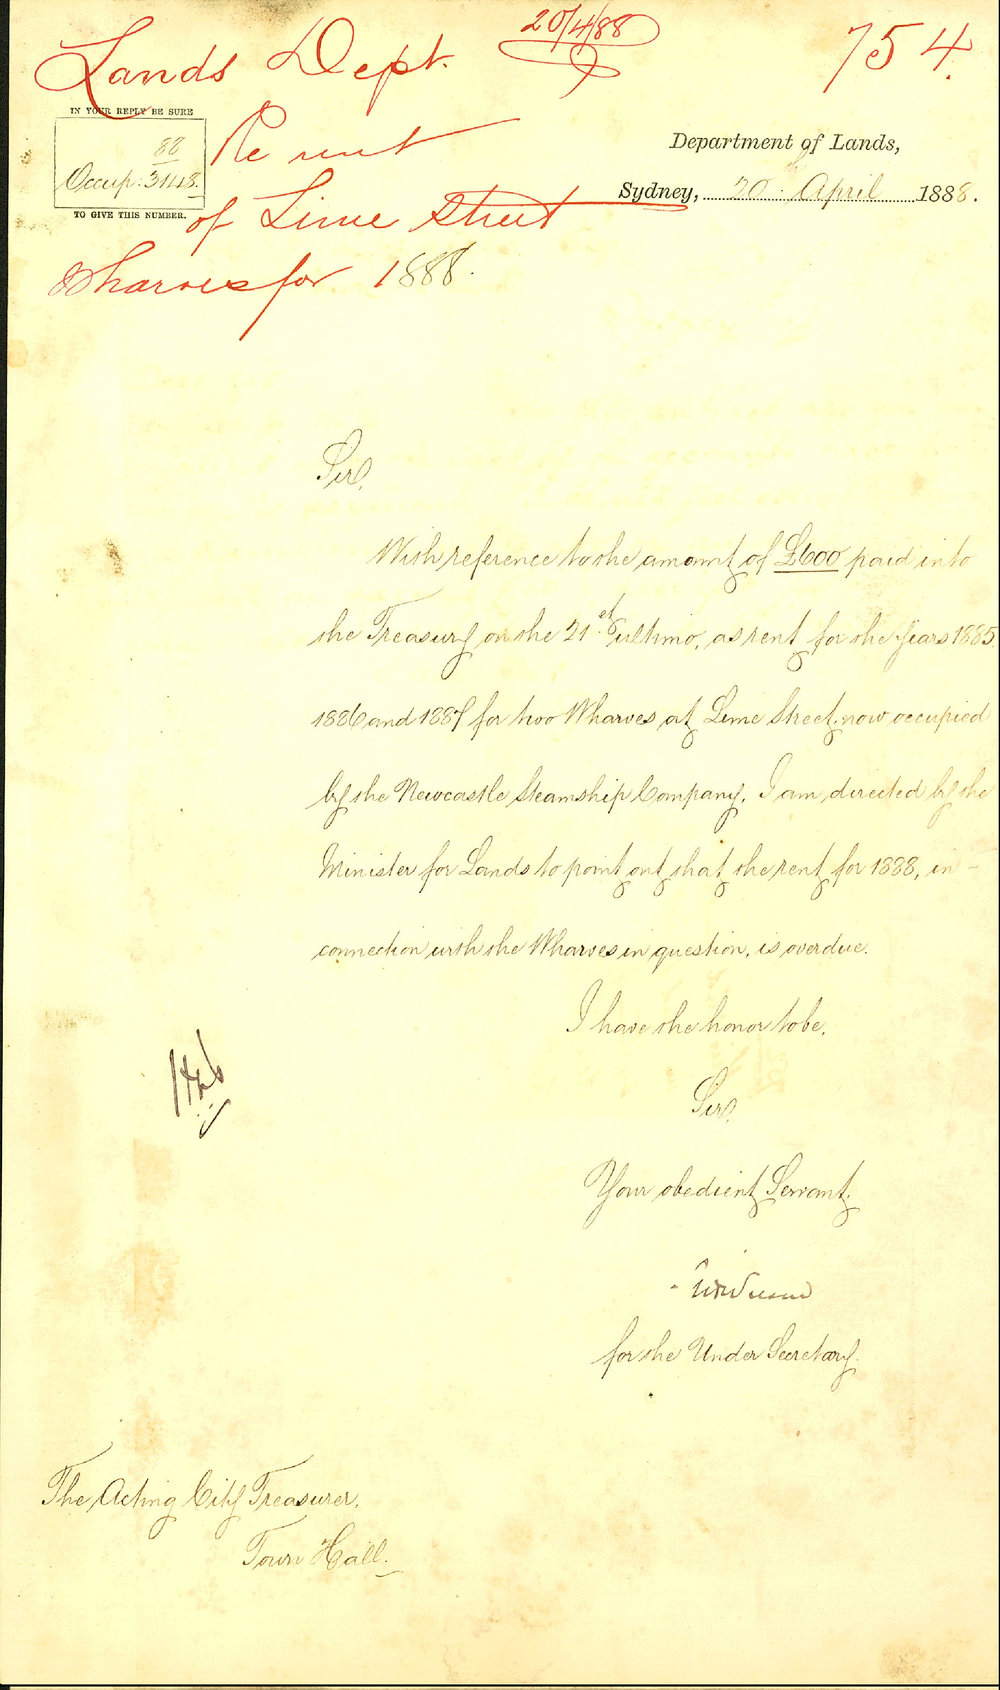 20/4/88
Lands Dept.
754.
IN YOUR REPLY BE SURE
88
Occup: 3148.
TO GIVE THIS NUMBER.
Re rent
of Lime Street
Wharves for 1888.
Department of Lands,
Sydney, 20 April 1888.
Sir,
With reference to the amount of £600 paid into
the Treasury on the 21st ultimo, as rent for the Years 1885
1886 and 1887 for two Wharves at Lime Street, now occupied
by the Newcastle Steamship Company, I am directed by the
Minister for Lands to point out that the rent for 1888, in-
connection with the Wharves in question, is overdue.
I have the honor to be,
Sir,
Your obedient Servant,
for the Under Secretary.
The Acting City Treasurer,
Town Hall.